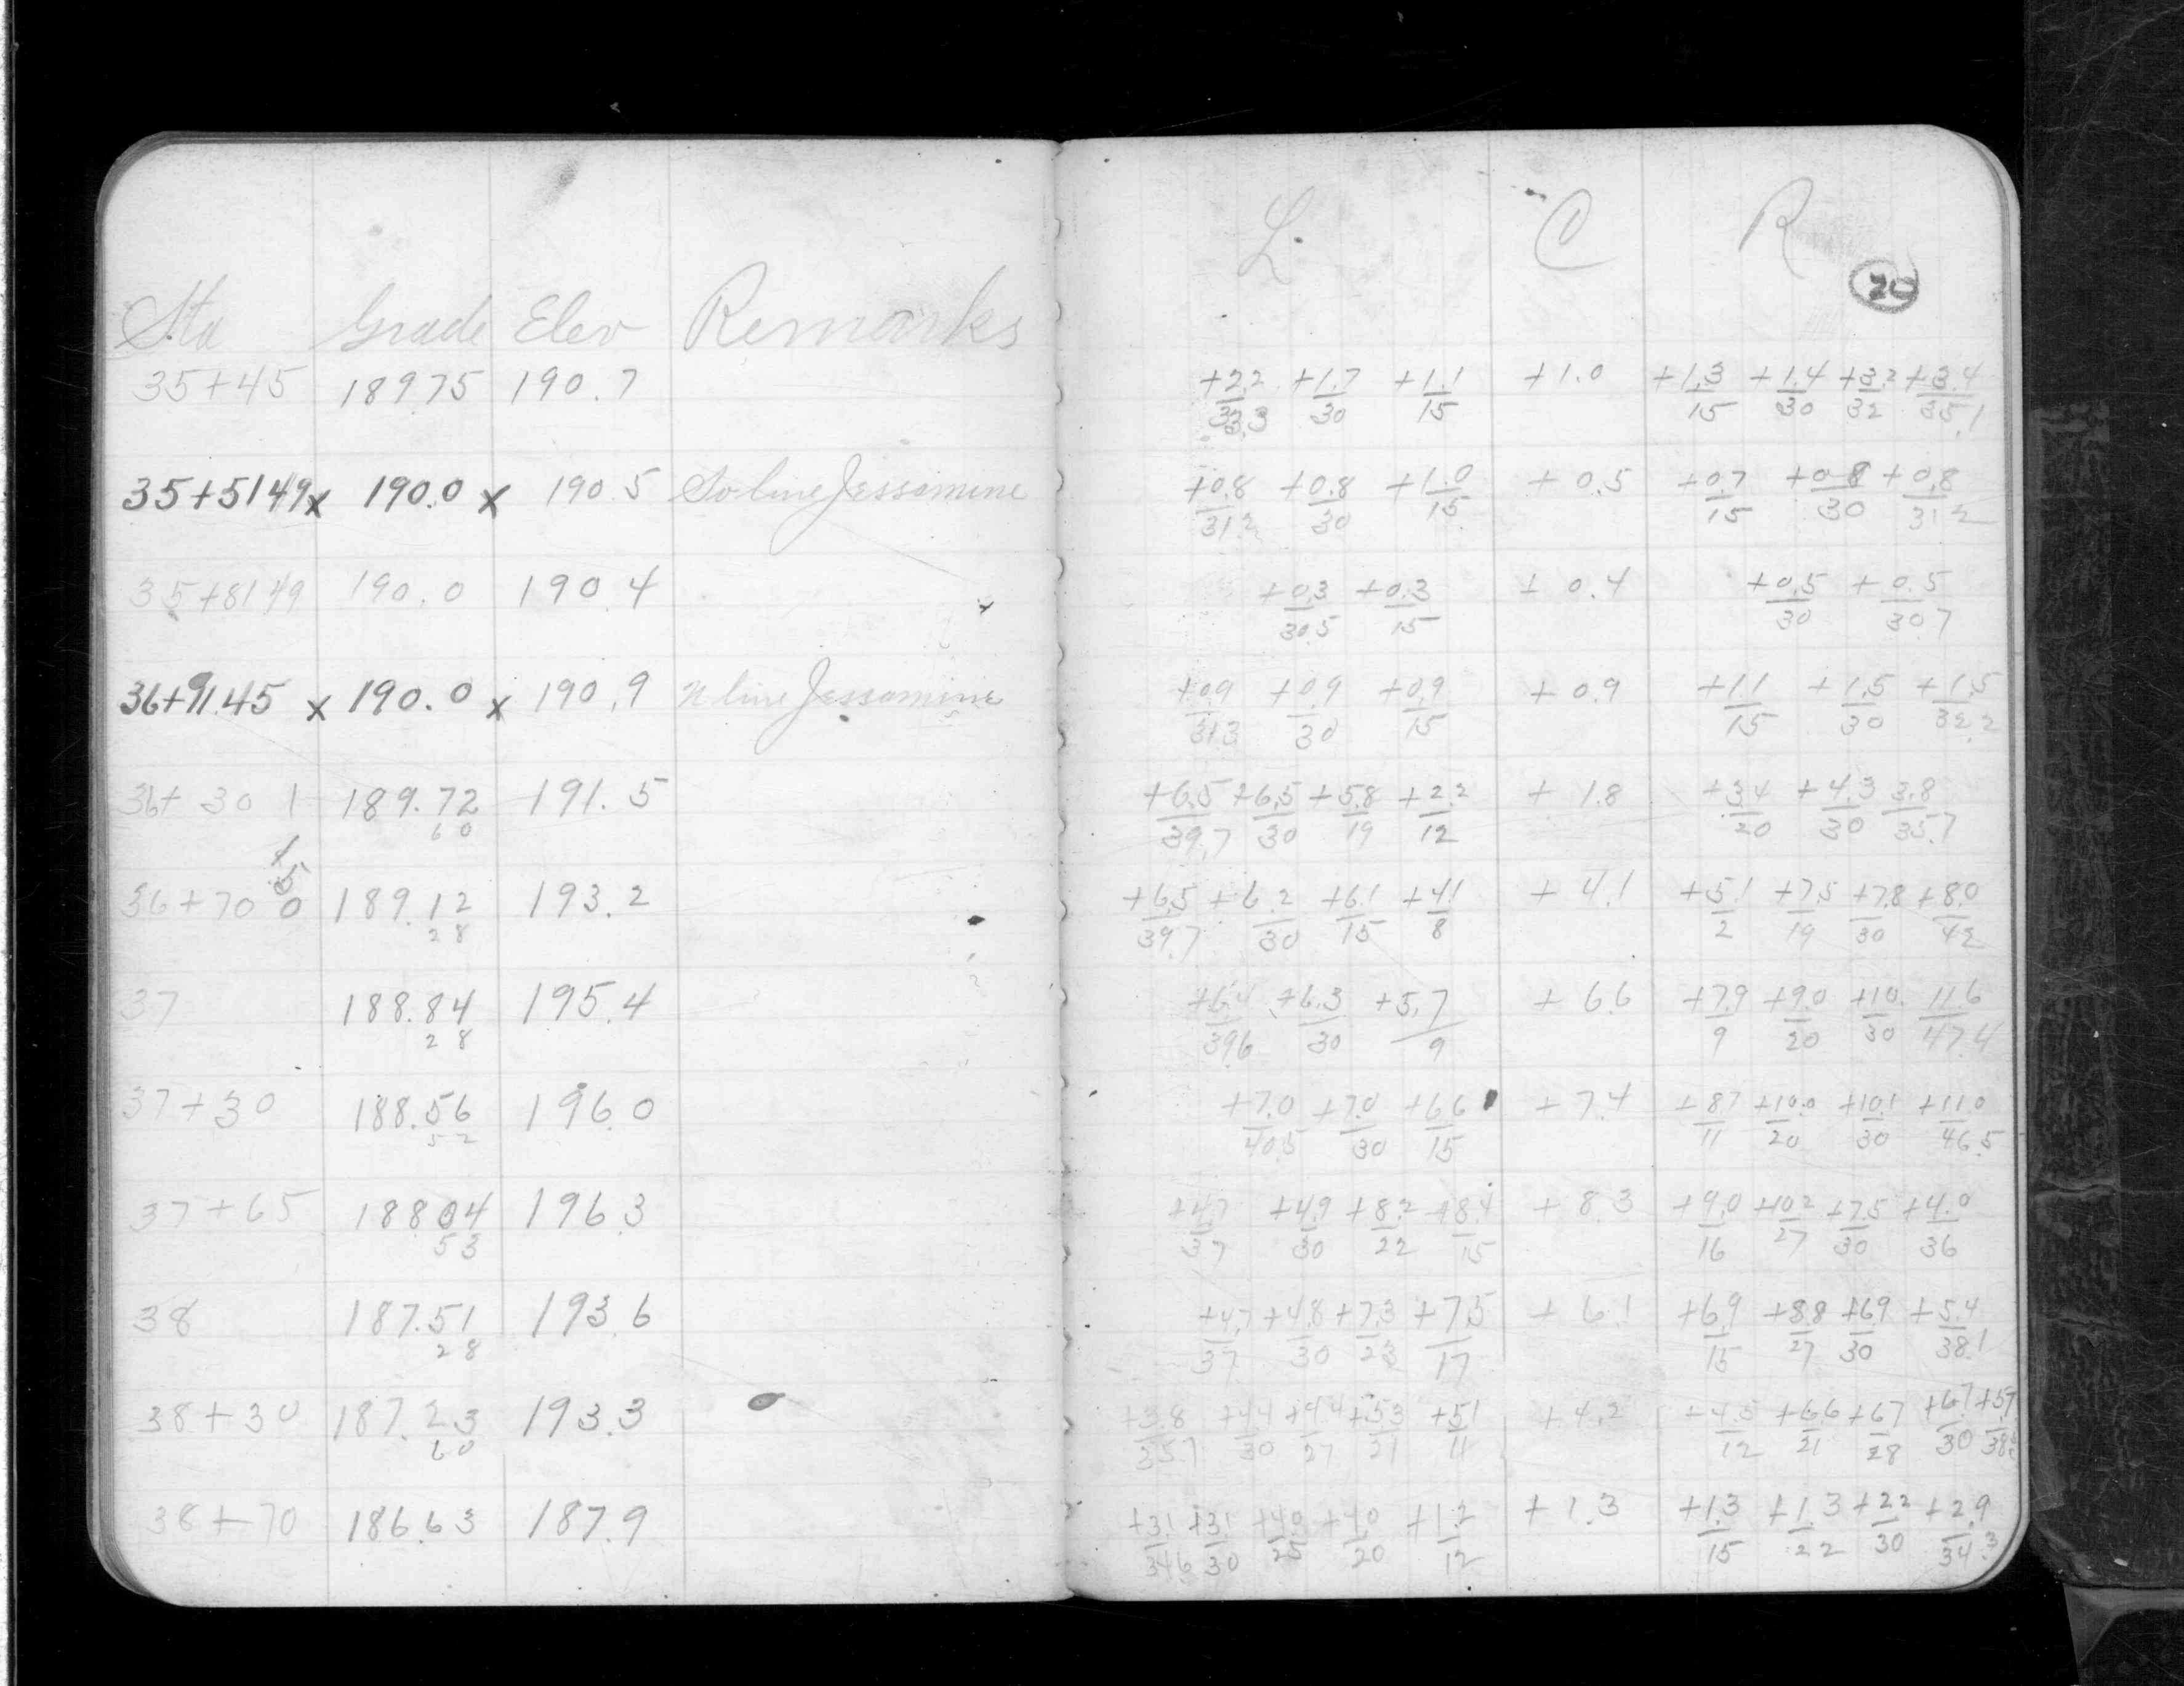 L. C R
20
Sta Grade Elev Remarks
35+45 189.75 190.7
+2.2/33.3 +1.7/30 +1.1/15 +1.0 +1.3/15 +1.4/30 +3.2/32 +3.4/35.1
35+5149x 190.0 x 190.5 So line Jessamine
+0.8/31.2 +0.8/30 +1.0/15 +0.5 +0.7/15 +0.8/30 +0.8/31.2
35+8149 190.0 190.4
+0.3/30.5 +0.3/15 +0.4 +0.5/30 +0.5/30.7
36+11.45 x 190.0 x 190.9 N line Jessamine
+0.9/31.3 +0.9/30 +0.9/15 +0.9 +1.1/15 +1.5/30 +1.5/32.2
36+30 189.72 191.5
60
+6.5/39.7 +6.5/30 +5.8/19 +2.2/12 +1.8 +3.4/20 +4.3/30 3.8/35.7
36+70 189.12 193.2
28
+6.5/39.7 +6.2/30 +6.1/15 +4.1/8 +4.1 +5.1/2 +7.5/19 +7.8/30 +8.0/42
37 188.84 195.4
28
+6.4/39.6 +6.3/30 +5.7/9 +6.6 +7.9/9 +9.0/20 +10./30 11.6/47.4
37+30 188.56 196.0
52
+7.0/40.5 +7.0/30 +6.6/15 +7.4 +8.7/11 +10.0/20 +10.1/30 +11.0/46.5
37+65 188.04 196.3
53
+4.7/37 +4.9/30 +8.2/22 +8.4/15 +8.3 +9.0/16 +10.2/27 +7.5/30 +4.0/36
38 187.51 193.6
28
+4.7/37 +4.8/30 +7.3/23 +7.5/17 +6.1 +6.9/15 +8.8/27 +6.9/30 +5.4/38.1
38+30 187.23 193.3
60
+3.8/35.7 +4.4/30 +4.4/27 +5.3/21 +5.1/11 +4.2 +4.5/12 +6.6/21 +6.7/28 +6.7/30 +5.7
38+70 186.63 187.9
+3.1/34.6 +3.1/30 +4.0/25 +4.0/20 +1.2/12 +1.3 +1.3/15 +1.3/22 +2.2/30 +2.9/34.3